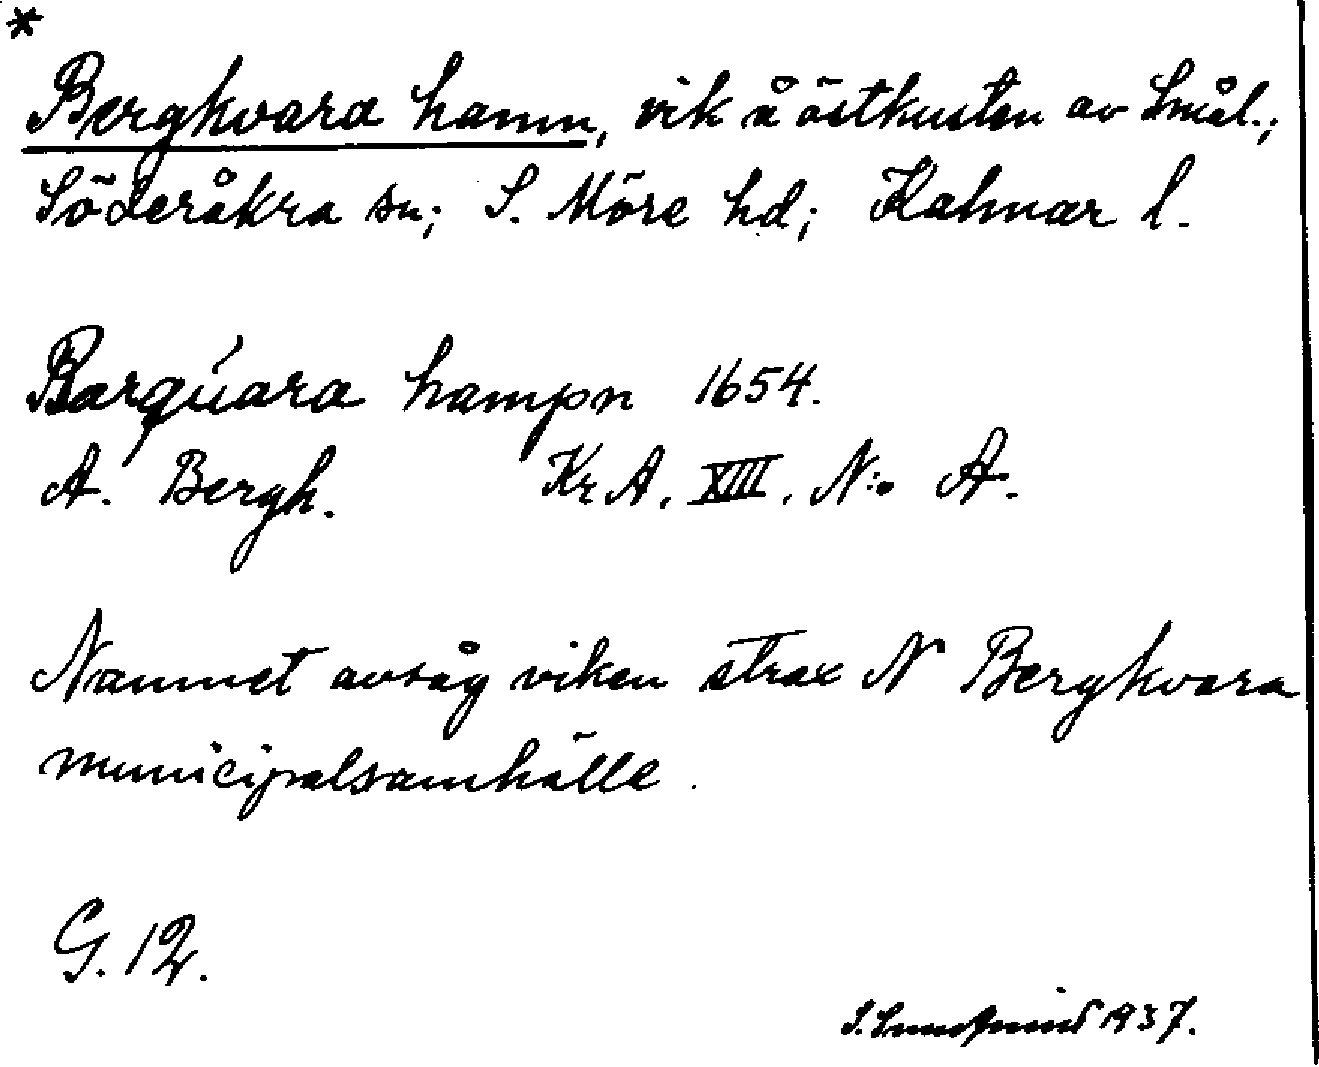 *
Bergkvara hamn, vik å östkusten av Smål.;
Söderåkra sn; S. Möre hd; Kalmar l.
Barqúara hampn 1654.
A. Bergh. Kr A. XIII. N:o A.
Namnet avsåg viken strax N Bergkvara
municipalsamhälle.
G. 12.
S. 1937.